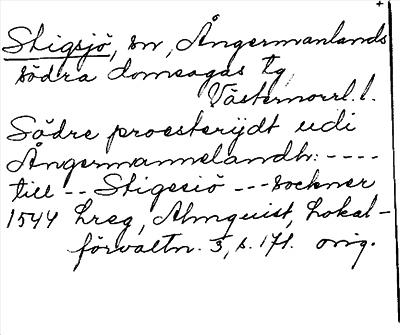 Stigsjö, sn, Ångermanlands
södra domsagas tg,
Västernorrl. l.
Södre proesterijdt udi
Ångermannelandh: ----
till -- Stigesiö --- Sockner
1544 Lreg, Almquist, Lokal-
förvaltn. 3, s. 171. orig.